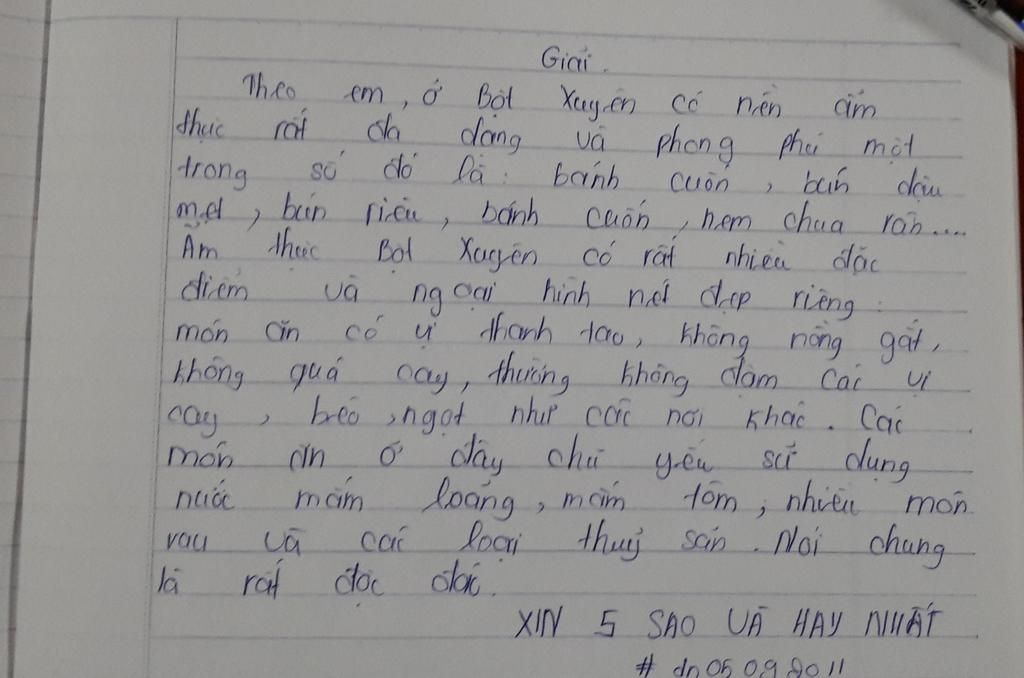 Giải.
Theo em, ở Bột Xuyên có nền ẩm
thực rất đa dạng và phong phú một
trong số đó là: bánh cuốn, bún đậu
mẹt, bún riêu, bánh cuốn, nem chua rán....
Ẩm thực Bột Xuyên có rất nhiều đặc
điểm và ngoại hình nét đẹp riêng:
món ăn có vị thanh tao, không nồng gắt,
không quá cay, thường không đậm các vị
cay, béo, ngọt như các nơi khác. Các
món ăn ở đây chủ yếu sử dụng
nước mắm loãng, mắm tôm, nhiều món
rau và các loại thuỷ sản. Nói chung
là rất độc đáo.
XIN 5 SAO VÀ HAY NHẤT
# dn05092011